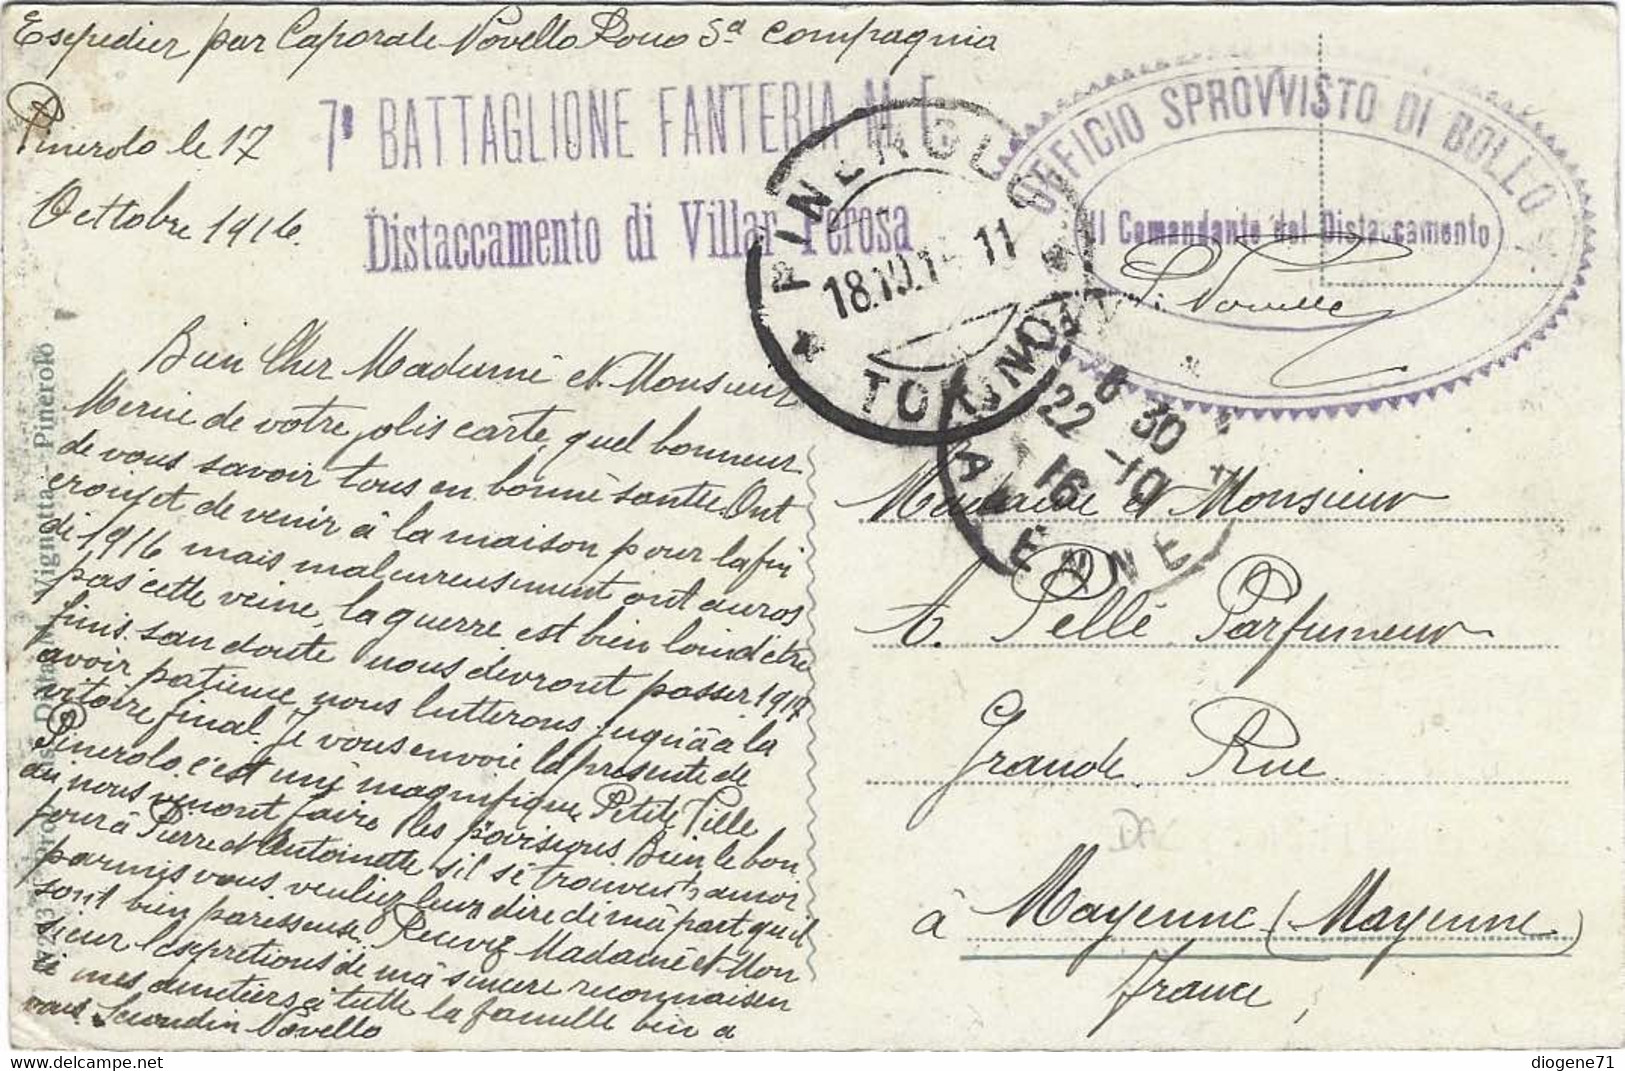 Espedier par Caporale Novello 5ª compagnia
Pinerolo le 17
Octtobre 1916.
7° BATTAGLIONE FANTERIA M. T.
Distaccamento di Villar Perosa
PINEROLO
18.10.1 11
TORINO
UFFICIO SPROVVISTO DI BOLLO
Il Comandante del Distaccamento
MAYENNE
6 30
22 -10
16
MAYENNE
Bien Cher Madame et Monsieur
Mersie de votre jolis carte, quel bonneur
de vous savoir tous en bonne santée. Ont
croiyet de venir â la maison pour la fin
di 1916 mais maleureusement ont auros
pas cette veine, la guerre est bien loin d'être
finis. san doute nous devront passer 1917
avoir patience nous lutterons juquâ â la
vitoire final. Je vous envoie la presente de
Pinerolo. c'est une magnifique Petite Ville
au nous venont faire les provisions. Bien le bon
jour â Pierre et Antoinette s'il se trouvent,
parmis vous veuliez leur dire di ma part qu'il
sont bien parisseuse. Recevez Madame et Mon
sieur l'espretions de ma sincere reconnaisen
ci mes amctiers â tutte la famille bien a
vous. Secondin Novello
Madame et Monsieur
A. Pellé Parfumeur
Grande Rue
DAC
â Mayenne (Mayenne)
France,
Vignotta - Pinerolo
diogene71